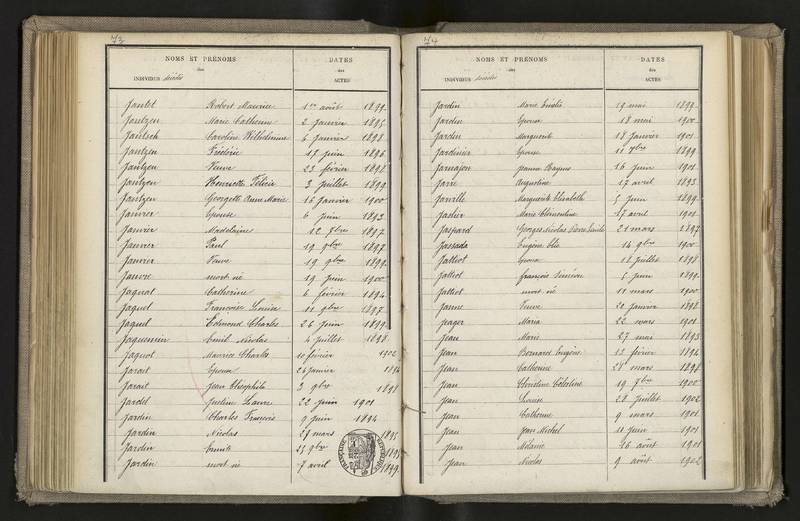 73
NOMS ET PRÉNOMS
des
INDIVIDUS décédés
DATES
des
ACTES
Jantet Robert Maurice 1er août 1899
Jantzen Marie Catherine 2 Janvier 1895
Jantsch Caroline Wilhelmine 6 Janvier 1898
Jantzen Frédéric 17 Juin 1896
Jantzen Veuve 23 février 1898
Jantzen Henriette Félicie 3 Juillet 1899
Jantzen Georgette Anne Marie 16 Janvier 1900
Janvier Epouse 6 Juin 1893
Janvier Madelaine 12 8bre 1897
Janvier Paul 19 9bre 1897
Janvier Veuve 19 9bre 1899
Janvre mort né 19 Juin 1900
Jaquat Catherine 6 février 1894
Jaquel Françoise Louise 11 9bre 1897
Jaquel Edmond Charles 26 Juin 1899
Jaquemin Emile Nicolas 4 Juillet 1898
Jaquot Maurice Charles 10 février 1902
Jaraut Epoux 24 Janvier 1894
Jaraut Jean Théophile 3 9bre 1898
Jardel Justine Laure 22 Juin 1901
Jardin Charles François 9 Juin 1894
Jardin Nicolas 27 mars 1895
Jardin Ernest 25 9bre 1895
Jardin mort né 7 avril 1899
74
NOMS ET PRÉNOMS
des
INDIVIDUS décédés
DATES
des
ACTES
Jardin Marie 19 mai 1899
Jardin Epoux 18 mai 1900
Jardin Marguerite 18 Janvier 1901
Jardinier Epouse 11 9bre 1899
Jarnajon Jeanne 16 Juin 1901
Jarre Augustine 17 avril 1893
Jarville Marguerite Elisabeth 5 Juin 1899
Marie Clémentine 17 avril 1901
Jaspard Georges Nicolas Pierre Emile 21 mars 1897
Jassada Eugène Elie 14 9bre 1900
Jattiot Epoux 18 Juillet 1898
Jattiot François Siméon 5 Juin 1899
Jattiot mort né 11 mars 1900
Jaune Veuve 20 Janvier 1898
Jeager Maria 22 mars 1901
Jean Marie 27 mai 1893
Jean Bernard Eugène 13 février 1894
Jean Catherine 28 mars 1898
Jean Clodine Célestine 19 7bre 1900
Jean Louise 28 Juillet 1902
Jean Catherine 9 mars 1901
Jean Jean Michel 11 Juin 1901
Jean Mélanie 16 août 1901
Jean Nicolas 9 août 1902